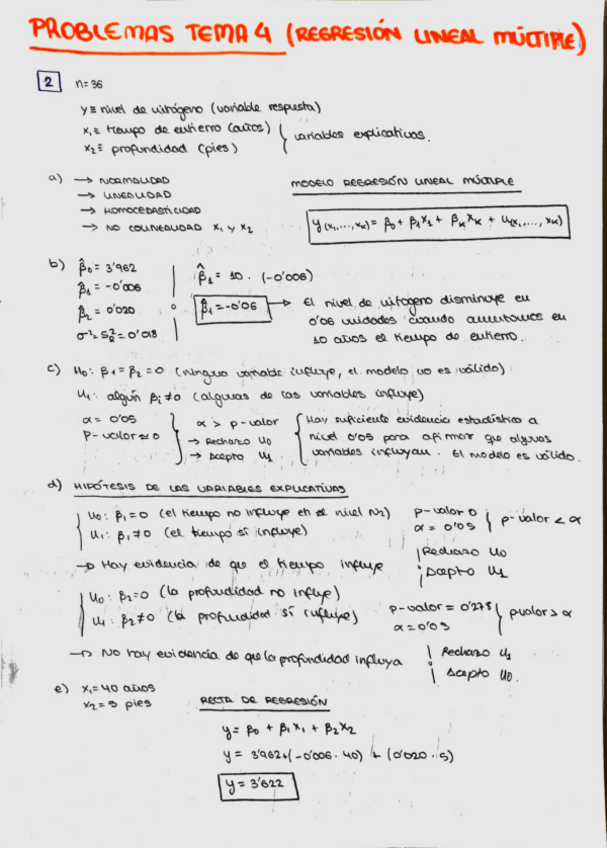 PROBLEMAS TEMA 4 (REGRESIÓN LINEAL MÚLTIPLE)
2 n=36
y ≡ nivel de nitrógeno (variable respuesta)
x₁ ≡ tiempo de entierro (años)
x₂ ≡ profundidad (pies)
variables explicativas.
a) → NORMALIDAD
→ LINEALIDAD
→ HOMOCEDASTICIDAD
→ NO COLINEALIDAD x₁ y x₂
MODELO REGRESIÓN LINEAL MÚLTIPLE
y(x₁,...,xₖ) = β₀ + β₁x₁ + βₖxₖ + u(x₁,...,xₖ)
b) β̂₀ = 3'962
β̂₁ = -0'006
β̂₂ = 0'020
σ² = S²R = 0'018
β̂₁ = 10 · (-0'006)
β̂₁ = -0'06 → El nivel de nitrogeno disminuye en
0'06 unidades cuando aumentamos en
10 años el tiempo de entierro.
c) H₀: β₁ = β₂ = 0 (ninguna variable influye, el modelo no es válido)
H₁: algún βᵢ ≠ 0 (algunas de las variables influye)
α = 0'05
p-valor ≈ 0
α > p-valor
→ Rechazo H₀
→ Acepto H₁
Hay suficiente evidencia estadística a
nivel 0'05 para afirmar que algunas
variables influyan. El modelo es válido.
d) HIPÓTESIS DE LAS VARIABLES EXPLICATIVAS
H₀: β₁ = 0 (el tiempo no influye en el nivel N₂)
H₁: β₁ ≠ 0 (el tiempo sí influye)
p-valor 0
α = 0'05
p-valor < α
→ Hay evidencia de que el tiempo influye
Rechazo H₀
Acepto H₁
H₀: β₂ = 0 (la profundidad no influye)
H₁: β₂ ≠ 0 (la profundidad sí influye)
p-valor = 0'278
α = 0'05
pvalor > α
→ No hay evidencia de que la profundidad influya
Rechazo H₁
Acepto H₀.
e) x₁ = 40 años
x₂ = 5 pies
RECTA DE REGRESIÓN
y = β₀ + β₁x₁ + β₂x₂
y = 3'962 + (-0'006 · 40) + (0'020 · 5)
y = 3'622